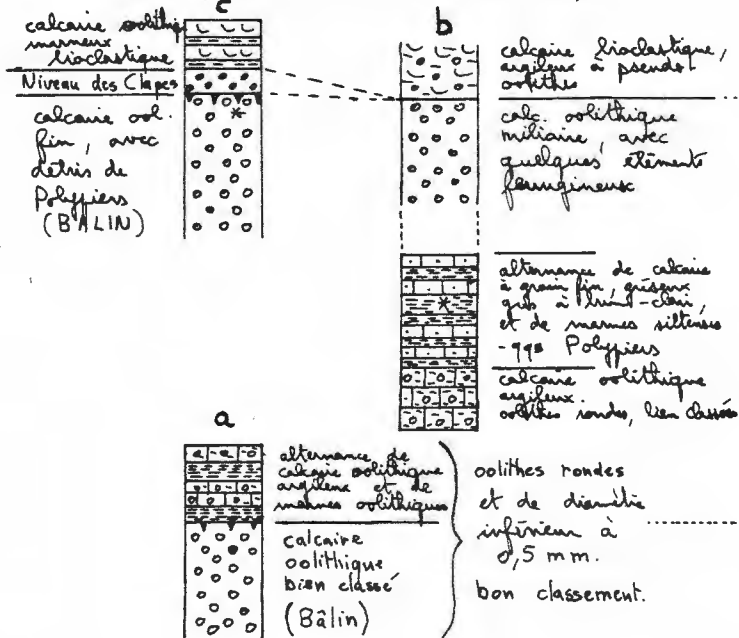 c
calcaire oolithiq
marneux
bioclastique
Niveau des Clapes
calcaire ool.
fin, avec
détris de
Polypiers
(BALIN)
b
calcaire bioclastique,
argileux à pseudo-
oolithes
calc. oolithique
miliaire, avec
quelques éléments
ferrugineux
alternance de calcaire
à grain fin, gréseux
gris à brun-clair,
et de marnes silteuses
-qqs Polypiers
calcaire oolithique
argileux.
oolithes rondes, bien classées
a
alternance de
calcaire oolithique
argileux et de
marnes oolithiques
calcaire
oolithique
bien classé
(Bâlin)
oolithes rondes
et de diamètre
inférieur à
0,5 mm.
bon classement.